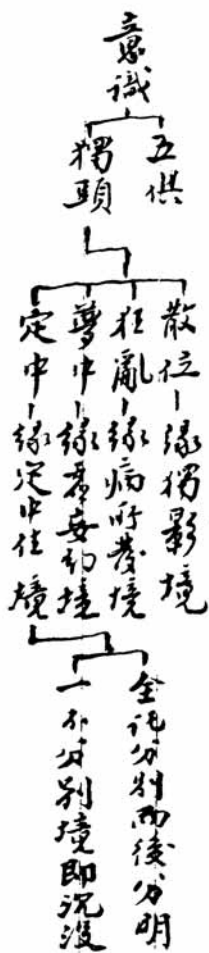 意識
五俱
獨頭
散位－緣獨影境
狂亂－緣病所發境
夢中－緣虛妄幻境
定中－緣定中住境
全託分別而後分明
一不分別境即沉沒